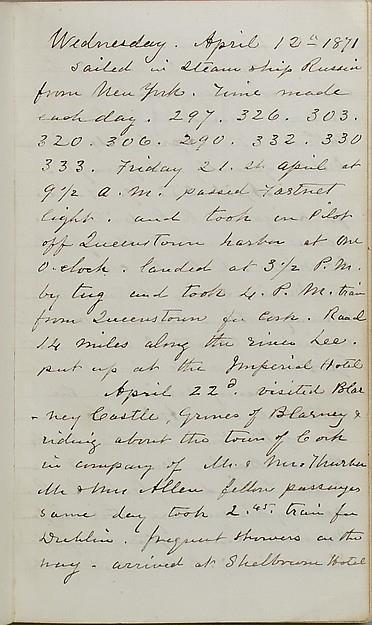 Wednesday. April 12th 1871
Sailed in Steam ship Russia
from New York. Time made
each day. 297. 326. 303.
320. 306. 290. 332. 330
333. Friday 21.st April at
9 1/2 A.M. passed Fastnet
light. and took in Pilot
off Queenstown harbor at one
O-clock. landed at 3 1/2 P.M.
by tug and took 4. P.M. train
from Queenstown for Cork. Road
14 miles along the river Lee.
put up at the Imperial Hotel
April 22d. visited Blar
-ney Castle, Groves of Blarney &
riding about the town of Cork
in company of Mr. & Mrs Thurber
Mr & Mrs Allen fellow passengers
same day took 2.45. train for
Dublin. frequent showers on the
way. arrived at Shelbourne Hotel